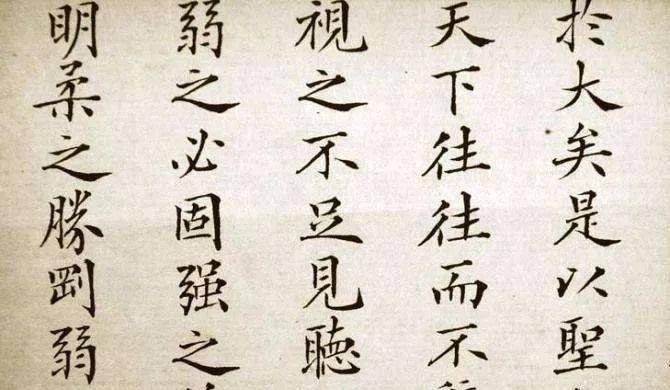 於大矣是以聖
天下往往而不
視之不足見聽
弱之必固强之
明柔之勝剛弱